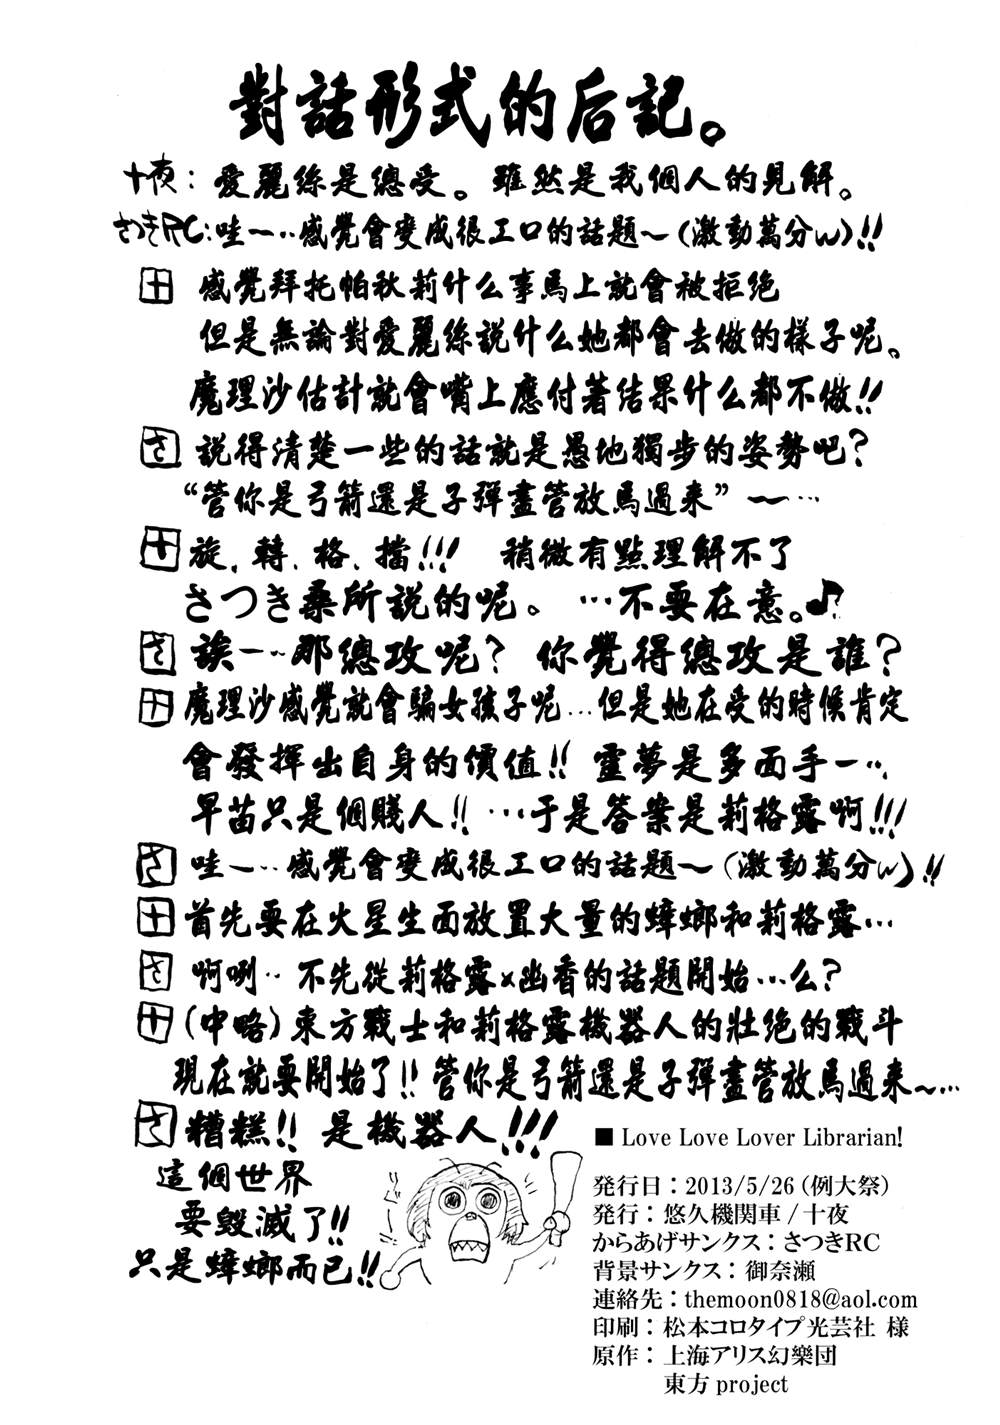 對話形式的后記。
十夜：愛麗絲是總受。雖然是我個人的見解。
さつきRC：哇一‥感覺會變成很工口的話題～（激動萬分w）!!
十 感覺拜托帕秋莉什么事馬上就會被拒絕
但是無論對愛麗絲說什么她都會去做的樣子呢。
魔理沙估計就會嘴上應付著结果什么都不做!!
さ 說得清楚一些的話就是愚地獨步的姿勢吧？
“管你是弓箭還是子彈盡管放馬過来”～…
十 旋、轉、格、擋!!! 稍微有點理解不了
さつき桑所説的呢。…不要在意。♪
さ 誒一‥那總攻呢？ 你覺得總攻是誰？
十 魔理沙感覺就會騙女孩子呢…但是她在受的時候肯定
會發揮出自身的價值!! 靈夢是多面手一‥
早苗只是個賤人!! …于是答案是莉格露啊!!!
さ 哇一‥感覺會變成很工口的話題～（激動萬分w）!!
十 首先要在火星生面放置大量的蟑螂和莉格露…
さ 啊咧‥不先從莉格露×幽香的話題開始…么？
十（中略）東方戰士和莉格露機器人的壯绝的戰斗
現在就要開始了!! 管你是弓箭還是子彈盡管放馬過来～…
さ 糟糕!! 是機器人!!!
這個世界
要毀滅了!!
只是蟑螂而已!!
■ Love Love Lover Librarian!
発行日：2013/5/26（例大祭）
発行：悠久機関車 / 十夜
からあげサンクス：さつきRC
背景サンクス：御奈瀬
連絡先：themoon0818@aol.com
印刷：松本コロタイプ光芸社 様
原作：上海アリス幻樂団
東方 project